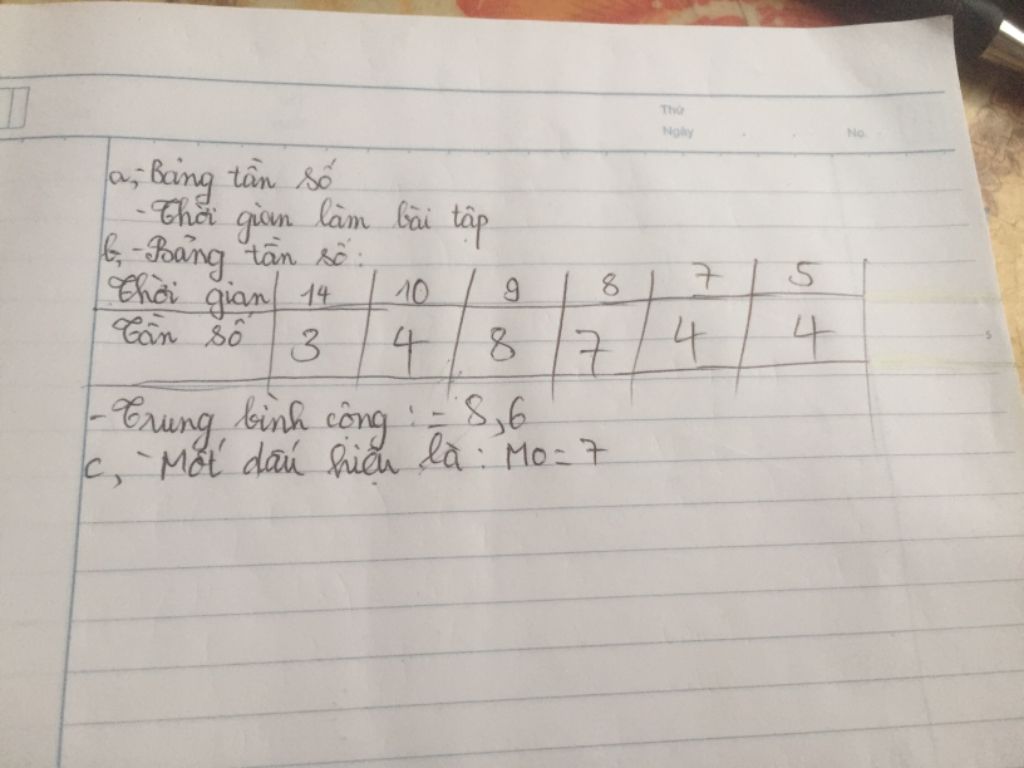 Thứ
Ngày . . No.
a, - Bảng tần số
- Thời gian làm bài tập
b, - Bảng tần số :
Thời gian 14 10 9 8 7 5
Tần số 3 4 8 7 4 4
- Trung bình cộng : = 8,6
c, - Mốt dấu hiệu là : Mo = 7